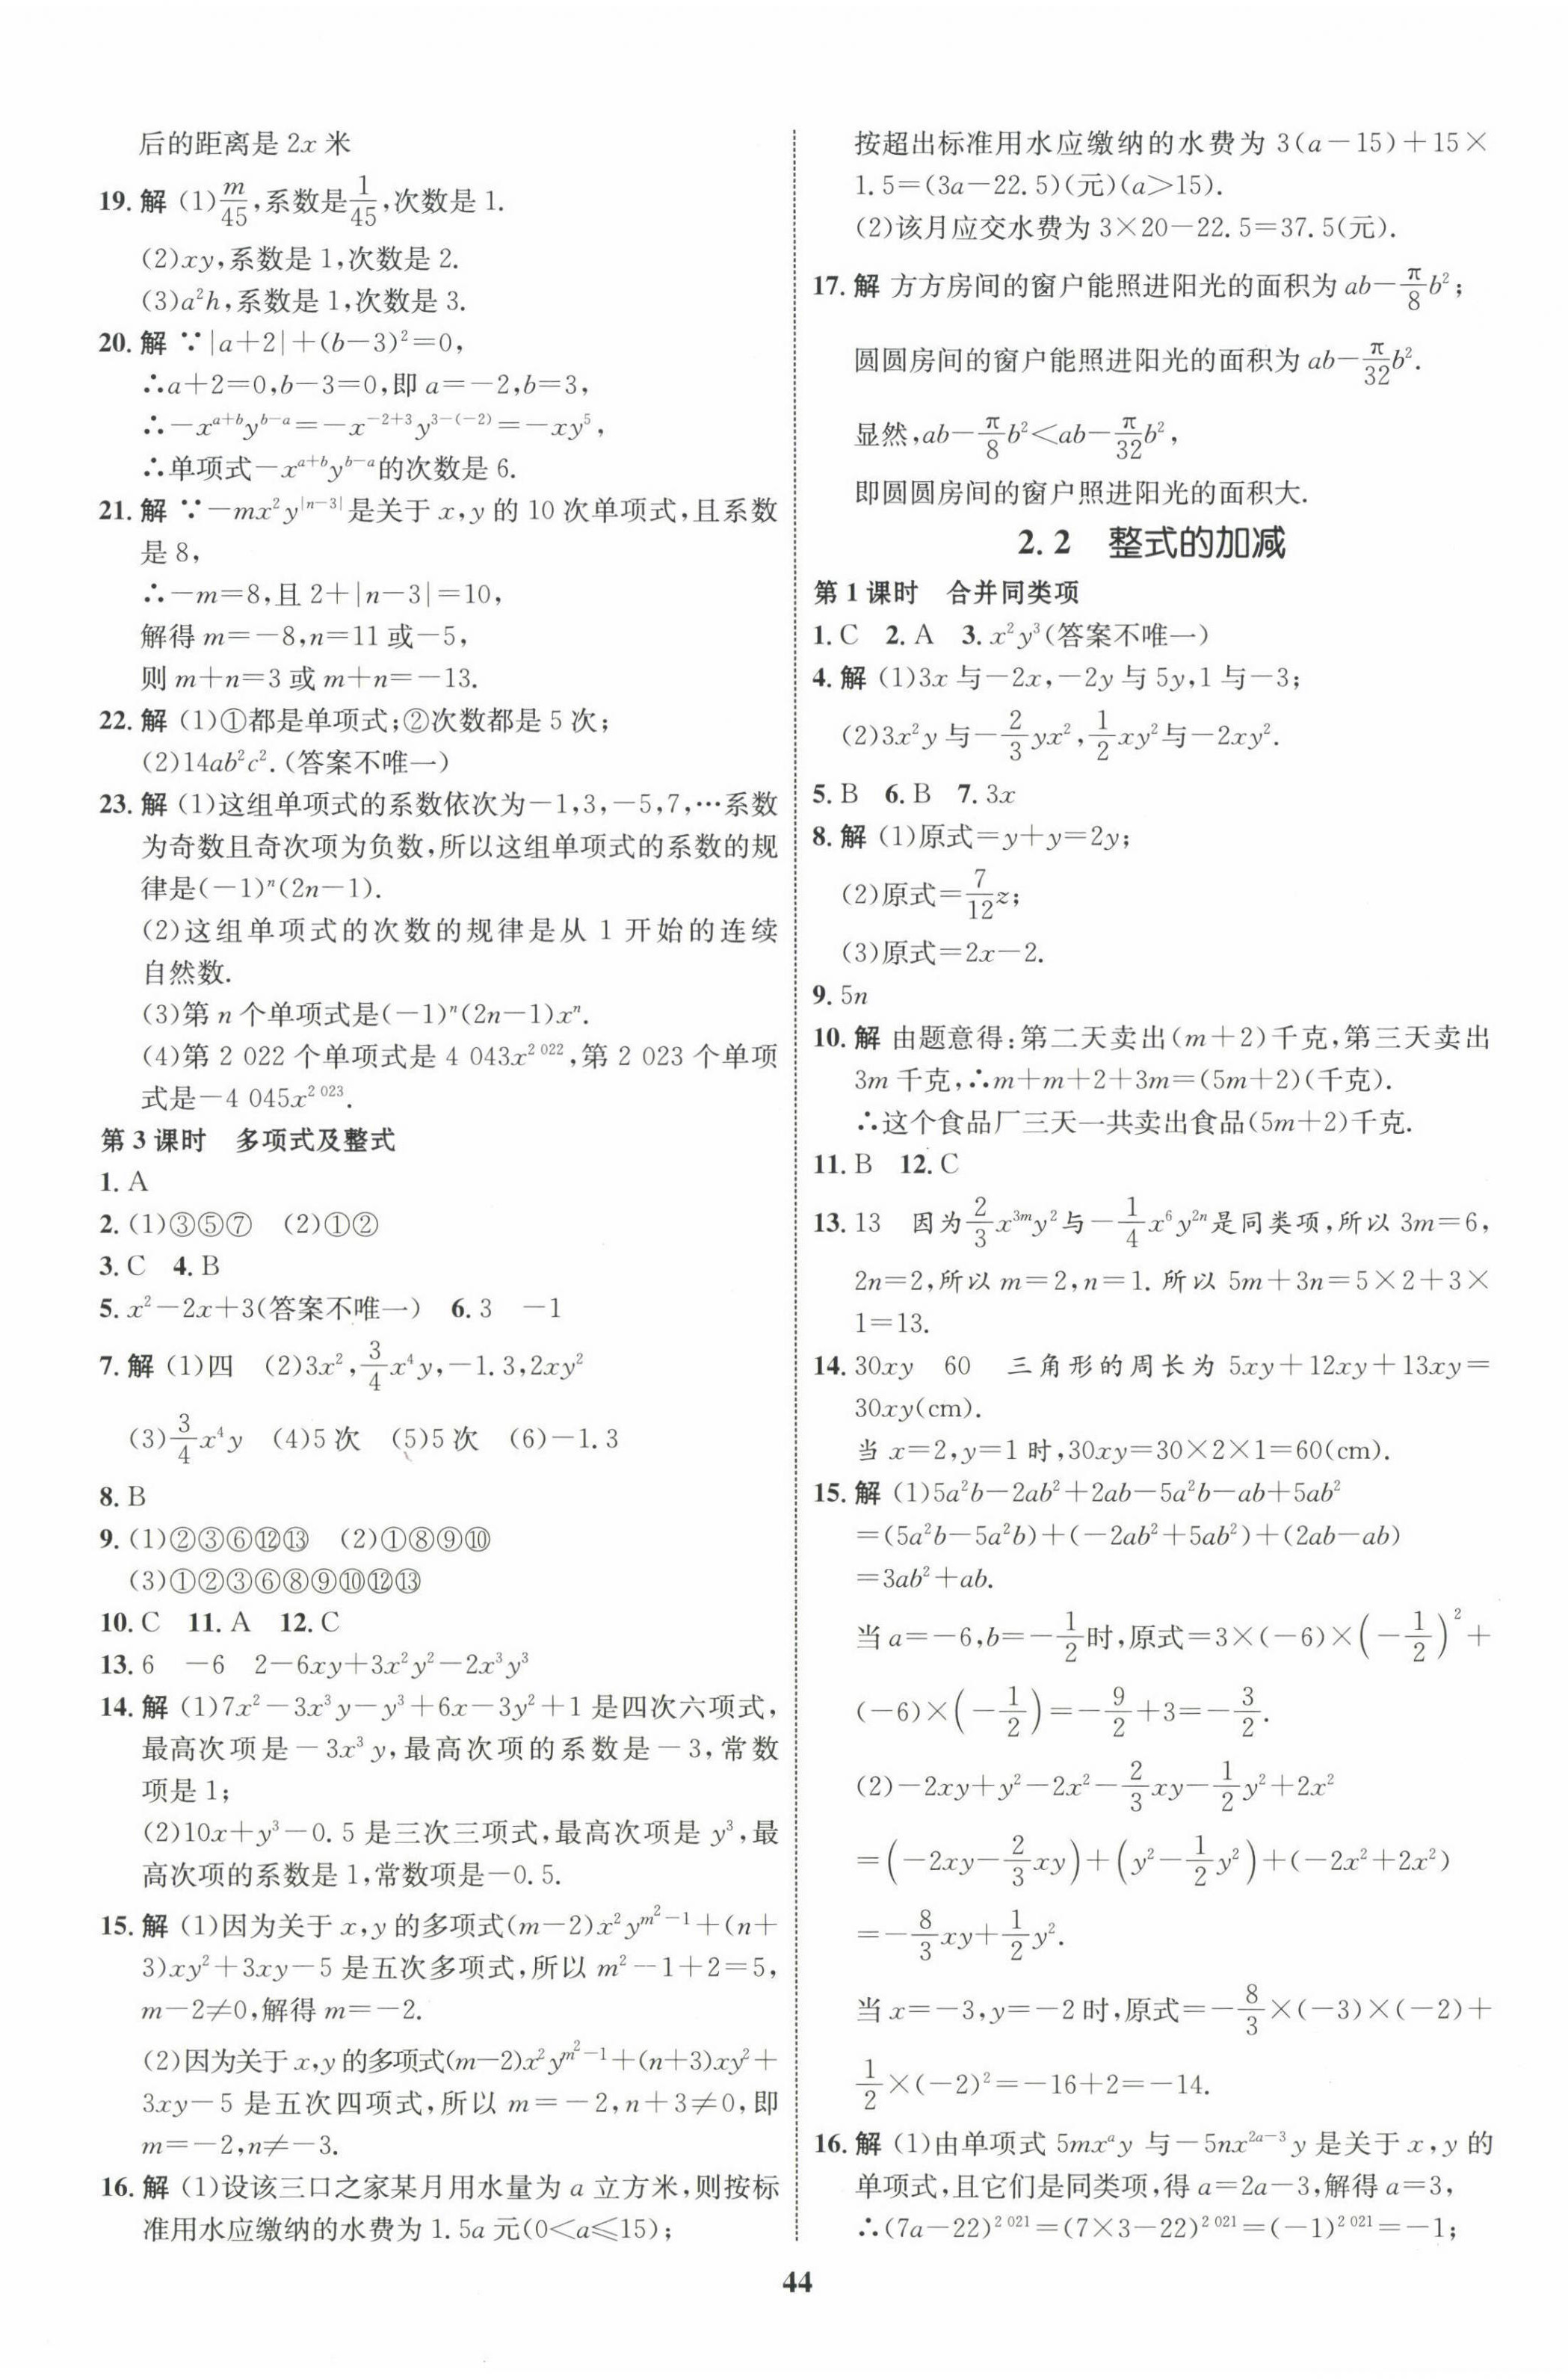 后的距离是 2x 米
19. 解 (1)m/45,系数是1/45,次数是 1.
(2)xy,系数是 1,次数是 2.
(3)a²h,系数是 1,次数是 3.
20. 解 ∵|a+2|+(b−3)²=0,
∴a+2=0,b−3=0,即 a=−2,b=3,
∴−x^{a+b}y^{b−a}=−x^{−2+3}y^{3−(−2)}=−xy⁵,
∴单项式−x^{a+b}y^{b−a}的次数是 6.
21. 解 ∵−mx²y^{|n−3|}是关于 x,y 的 10 次单项式,且系数
是 8,
∴−m=8,且 2+|n−3|=10,
解得 m=−8,n=11 或−5,
则 m+n=3 或 m+n=−13.
22. 解 (1)①都是单项式;②次数都是 5 次;
(2)14ab²c².(答案不唯一)
23. 解 (1)这组单项式的系数依次为−1,3,−5,7,…系数
为奇数且奇次项为负数,所以这组单项式的系数的规
律是(−1)ⁿ(2n−1).
(2)这组单项式的次数的规律是从 1 开始的连续
自然数.
(3)第 n 个单项式是(−1)ⁿ(2n−1)xⁿ.
(4)第 2 022 个单项式是 4 043x^{2 022},第 2 023 个单项
式是−4 045x^{2 023}.
第 3 课时 多项式及整式
1. A
2. (1)③⑤⑦ (2)①②
3. C 4. B
5. x²−2x+3(答案不唯一) 6. 3 −1
7. 解 (1)四 (2)3x²,3/4x⁴y,−1.3,2xy²
(3)3/4x⁴y (4)5 次 (5)5 次 (6)−1.3
8. B
9. (1)②③⑥⑫⑬ (2)①⑧⑨⑩
(3)①②③⑥⑧⑨⑩⑫⑬
10. C 11. A 12. C
13. 6 −6 2−6xy+3x²y²−2x³y³
14. 解 (1)7x²−3x³y−y³+6x−3y²+1 是四次六项式,
最高次项是−3x³y,最高次项的系数是−3,常数
项是 1;
(2)10x+y³−0.5 是三次三项式,最高次项是 y³,最
高次项的系数是 1,常数项是−0.5.
15. 解 (1)因为关于 x,y 的多项式(m−2)x²y^{m²−1}+(n+
3)xy²+3xy−5 是五次多项式,所以 m²−1+2=5,
m−2≠0,解得 m=−2.
(2)因为关于 x,y 的多项式(m−2)x²y^{m²−1}+(n+3)xy²+
3xy−5 是五次四项式,所以 m=−2,n+3≠0,即
m=−2,n≠−3.
16. 解 (1)设该三口之家某月用水量为 a 立方米,则按标
准用水应缴纳的水费为 1.5a 元(0<a≤15);
按超出标准用水应缴纳的水费为 3(a−15)+15×
1.5=(3a−22.5)(元)(a>15).
(2)该月应交水费为 3×20−22.5=37.5(元).
17. 解 方方房间的窗户能照进阳光的面积为 ab−π/8b²;
圆圆房间的窗户能照进阳光的面积为 ab−π/32b².
显然,ab−π/8b²<ab−π/32b²,
即圆圆房间的窗户照进阳光的面积大.
2.2 整式的加减
第 1 课时 合并同类项
1. C 2. A 3. x²y³(答案不唯一)
4. 解 (1)3x 与−2x,−2y 与 5y,1 与−3;
(2)3x²y 与−2/3yx²,1/2xy²与−2xy².
5. B 6. B 7. 3x
8. 解 (1)原式=y+y=2y;
(2)原式=7/12z;
(3)原式=2x−2.
9. 5n
10. 解 由题意得:第二天卖出(m+2)千克,第三天卖出
3m 千克,∴m+m+2+3m=(5m+2)(千克).
∴这个食品厂三天一共卖出食品(5m+2)千克.
11. B 12. C
13. 13 因为2/3x^{3m}y²与−1/4x⁶y^{2n}是同类项,所以 3m=6,
2n=2,所以 m=2,n=1.所以 5m+3n=5×2+3×
1=13.
14. 30xy 60 三角形的周长为 5xy+12xy+13xy=
30xy(cm).
当 x=2,y=1 时,30xy=30×2×1=60(cm).
15. 解 (1)5a²b−2ab²+2ab−5a²b−ab+5ab²
=(5a²b−5a²b)+(−2ab²+5ab²)+(2ab−ab)
=3ab²+ab.
当 a=−6,b=−1/2时,原式=3×(−6)×(−1/2)²+
(−6)×(−1/2)=−9/2+3=−3/2.
(2)−2xy+y²−2x²−2/3xy−1/2y²+2x²
=(−2xy−2/3xy)+(y²−1/2y²)+(−2x²+2x²)
=−8/3xy+1/2y².
当 x=−3,y=−2 时,原式=−8/3×(−3)×(−2)+
1/2×(−2)²=−16+2=−14.
16. 解 (1)由单项式 5mxᵃy 与−5nx^{2a−3}y 是关于 x,y 的
单项式,且它们是同类项,得 a=2a−3,解得 a=3,
∴(7a−22)^{2 021}=(7×3−22)^{2 021}=(−1)^{2 021}=−1;
44